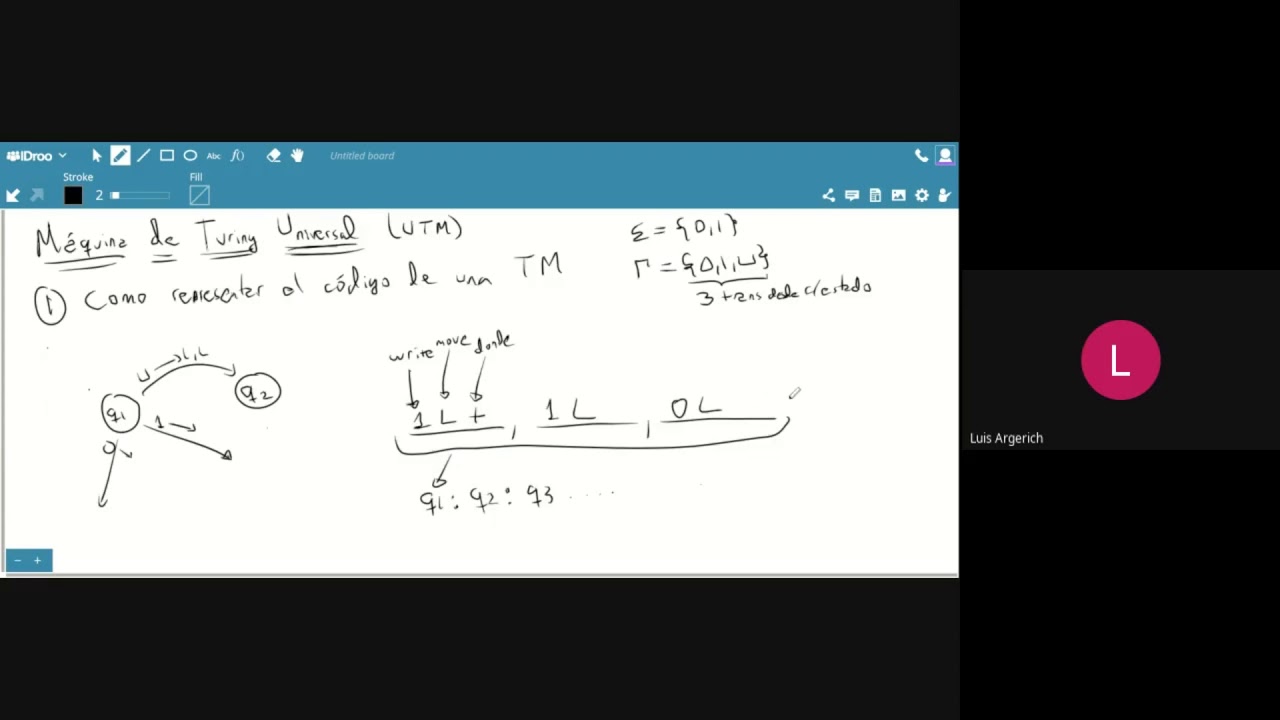 IDroo
Abc
f()
Untitled board
Stroke
Fill
2
Máquina de Turing Universal (UTM)
Σ = {0,1}
Γ = {0,1,⊔}
3 trans desde c/estado
① Como representar el código de una TM
write move donde
⊔ → 1,L
q1
q2
1 →
0
1 L + , 1 L , 0 L
q1 : q2 : q3 ....
L
Luis Argerich